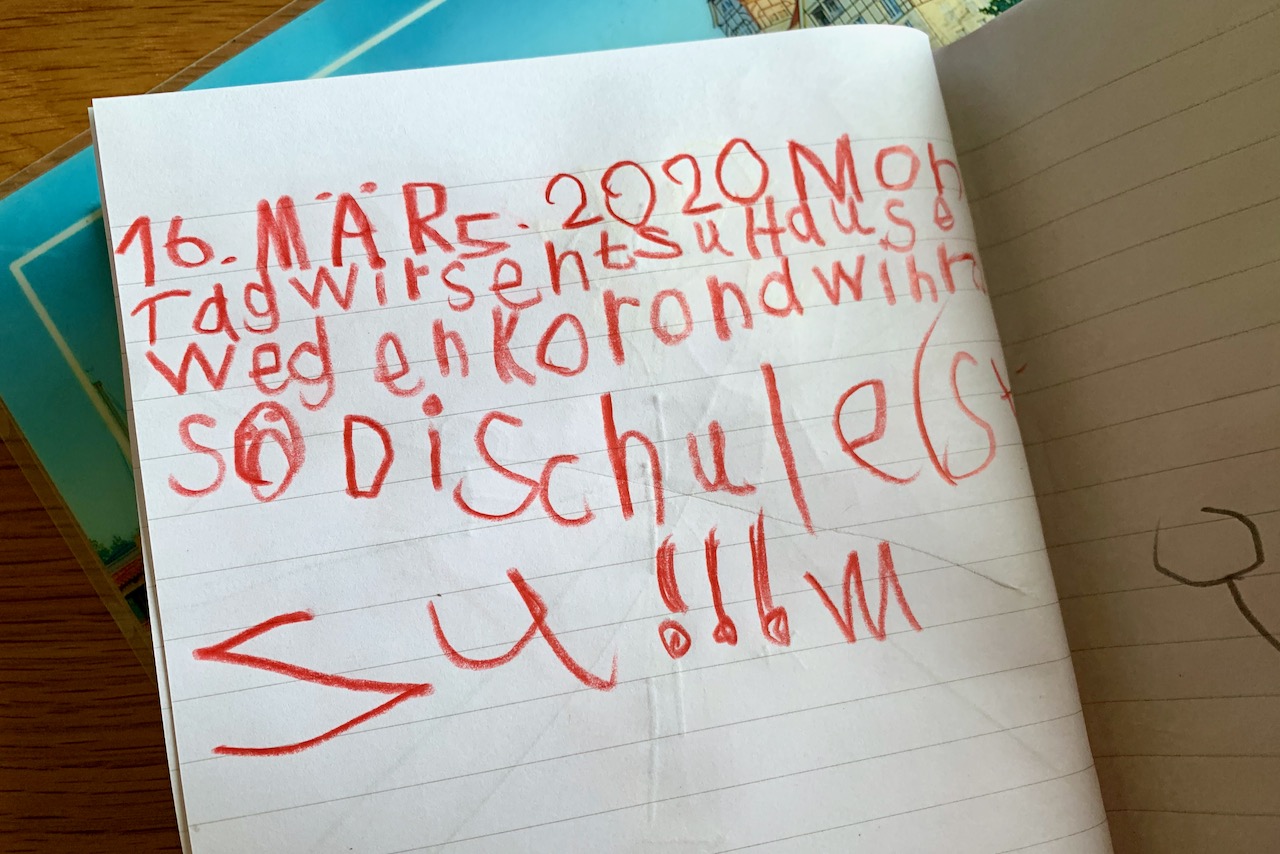 16. MÄRS. 2020 Mon
TagwirsentsuHause
wegenKoronawihra
SO DiSchule (St
Su!!! M